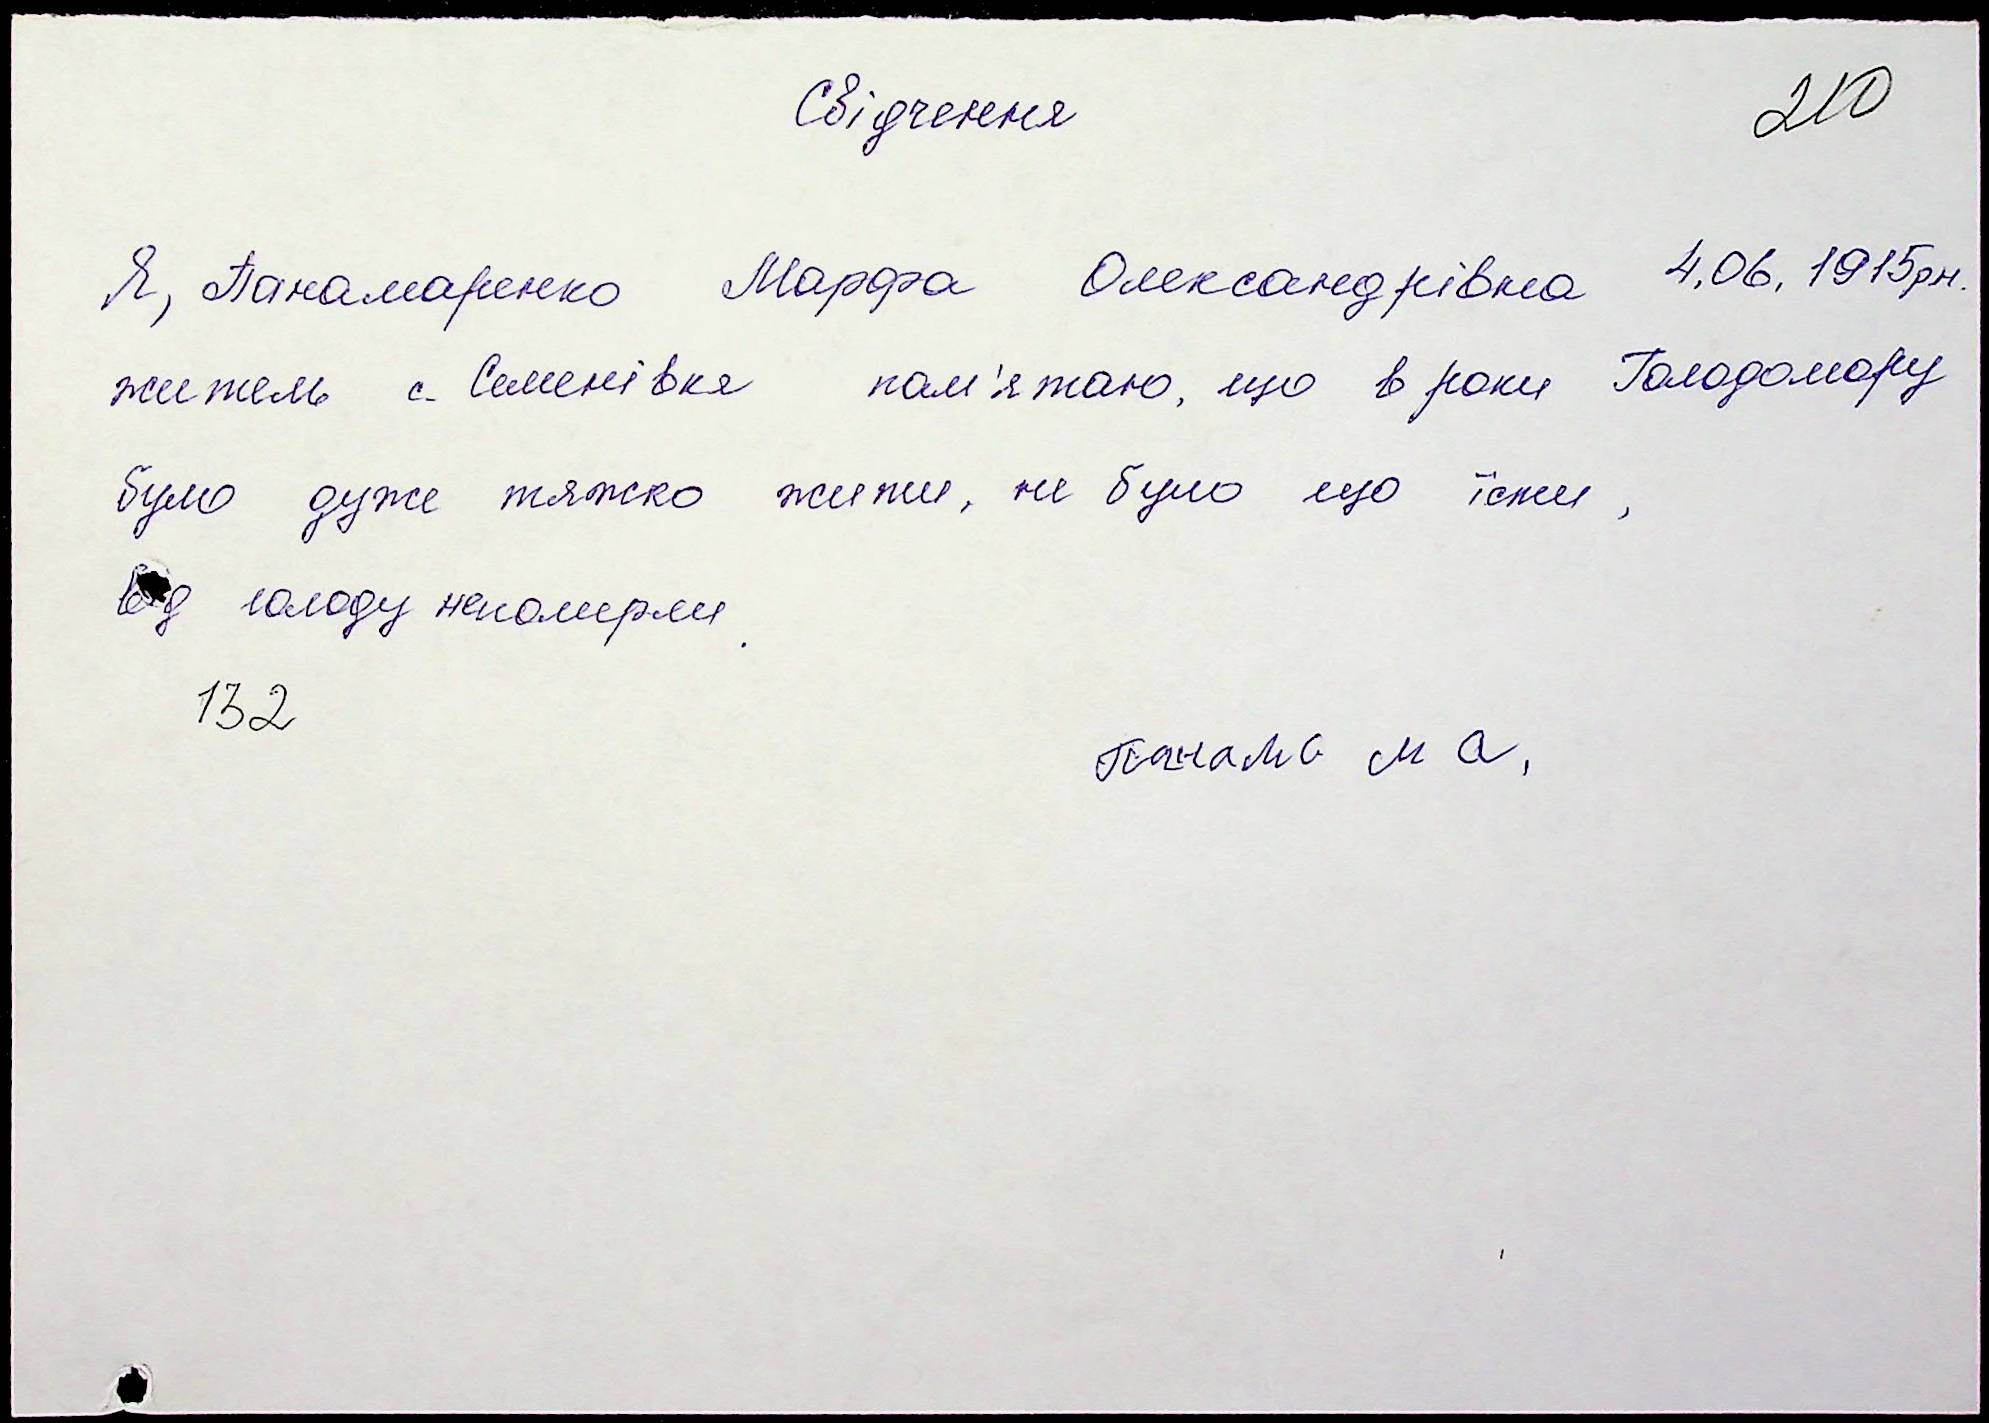 Свідчення
210
Я, Панамаренко Марфа Олександрівна 4.06.1915рн.
житель с. Семенівка пам'ятаю, що в роки Голодомору
було дуже тяжко жити, не було що їсти,
від голоду непомерли.
132
Панама М А,